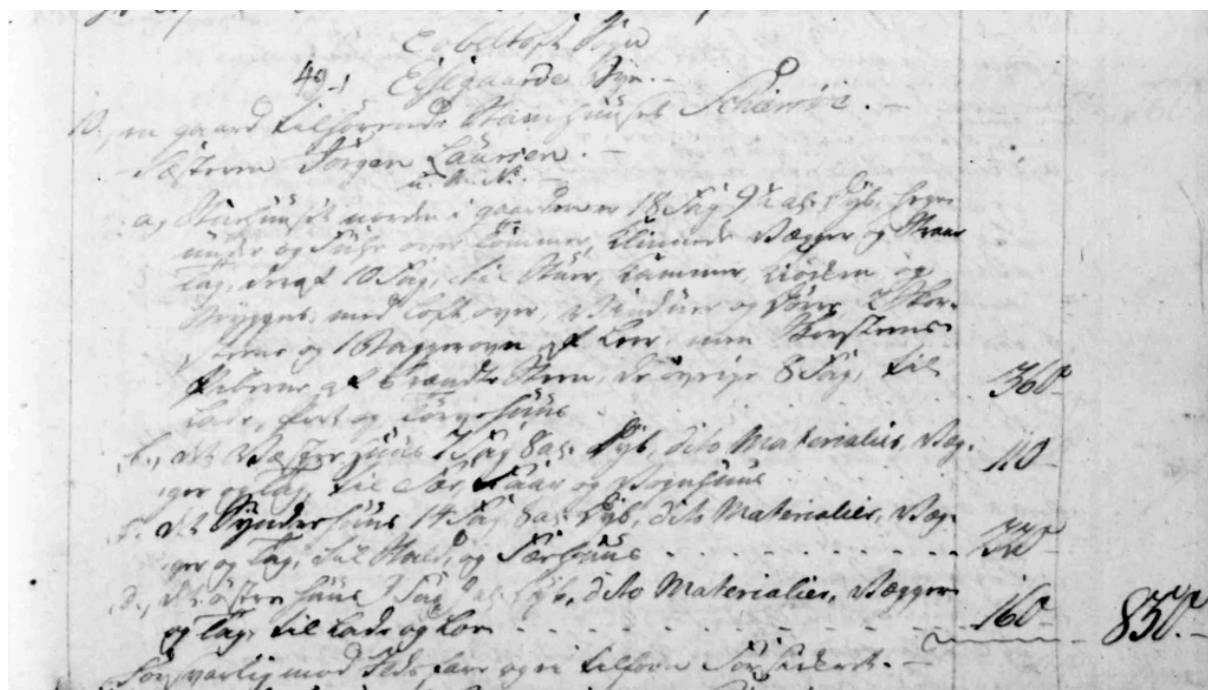 Ebeltoft Sogn
49.) Elsegaarde Bye.
10. en gaard tilhørende Stamhuuset Schiærsöe.
Fæsteren Jörgen Laursen.
a, Stuehuuset norden i gaarden er 18 Fag 9½ al: dyb, Eege
under og Fyhr over Tömmer, Klinede Vægger og Straae
Tag, deraf 10 Fag, til Stuer, Kammer, Kiöcken og
Bryggers, med Loft over, Vinduer og Döre, 2 Skor-
steene og 1 Bagerovn af Leer, men Skorsteens
Piberne af brændte Steen, de övrige 8 Fag, til
Lade, og Törvehuus 360
b., det Vester huus 7 Fag 8 al: dyb, dito Materialier, Væg-
ger og Tag, til Faar og Vognhuus 110
c. det Synder huus 14 Fag 8 al: dyb, dito Materialier, Væg-
ger og Tag, til Stald, og Færhuus 220
d., det öster huus Fag al: dyb, dito Materialier, Vægger
og Tag, til Lade og Loe 160 850.
Forsvarlig med Ildstær og ei tilforn Forsickret.